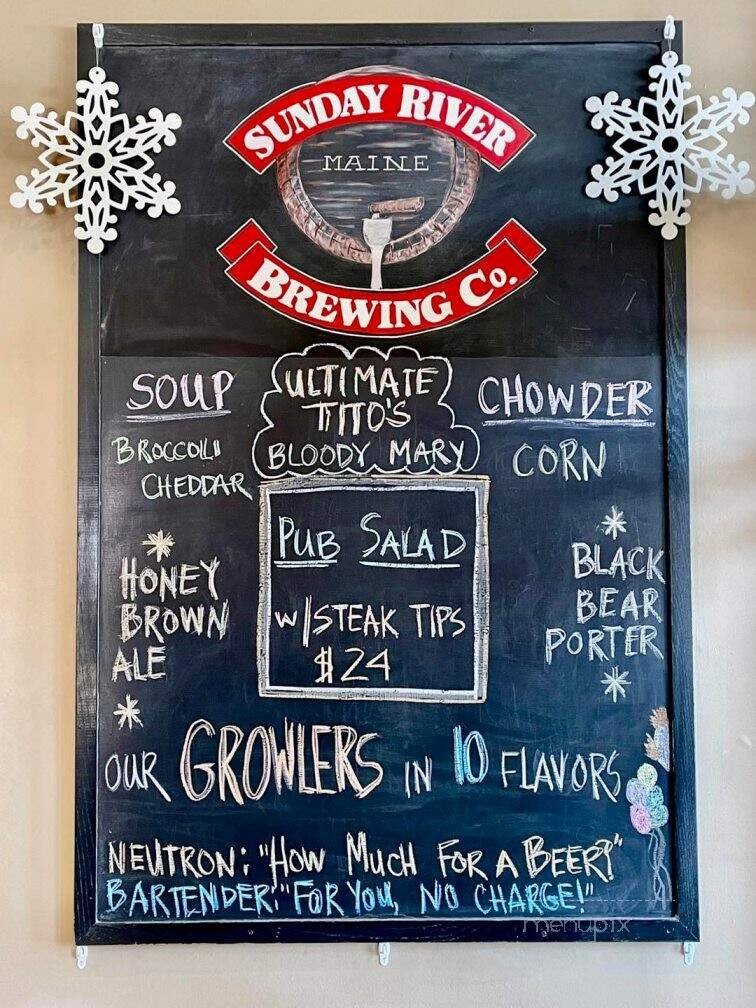 SUNDAY RIVER
MAINE
BREWING CO.
SOUP
BROCCOLI
CHEDDAR
ULTIMATE
TITO'S
BLOODY MARY
CHOWDER
CORN
PUB SALAD
W/STEAK TIPS
$24
*
HONEY
BROWN
ALE
*
*
BLACK
BEAR
PORTER
*
OUR GROWLERS IN 10 FLAVORS
NEUTRON: "HOW MUCH FOR A BEER?"
BARTENDER: "FOR YOU, NO CHARGE!"
menupix